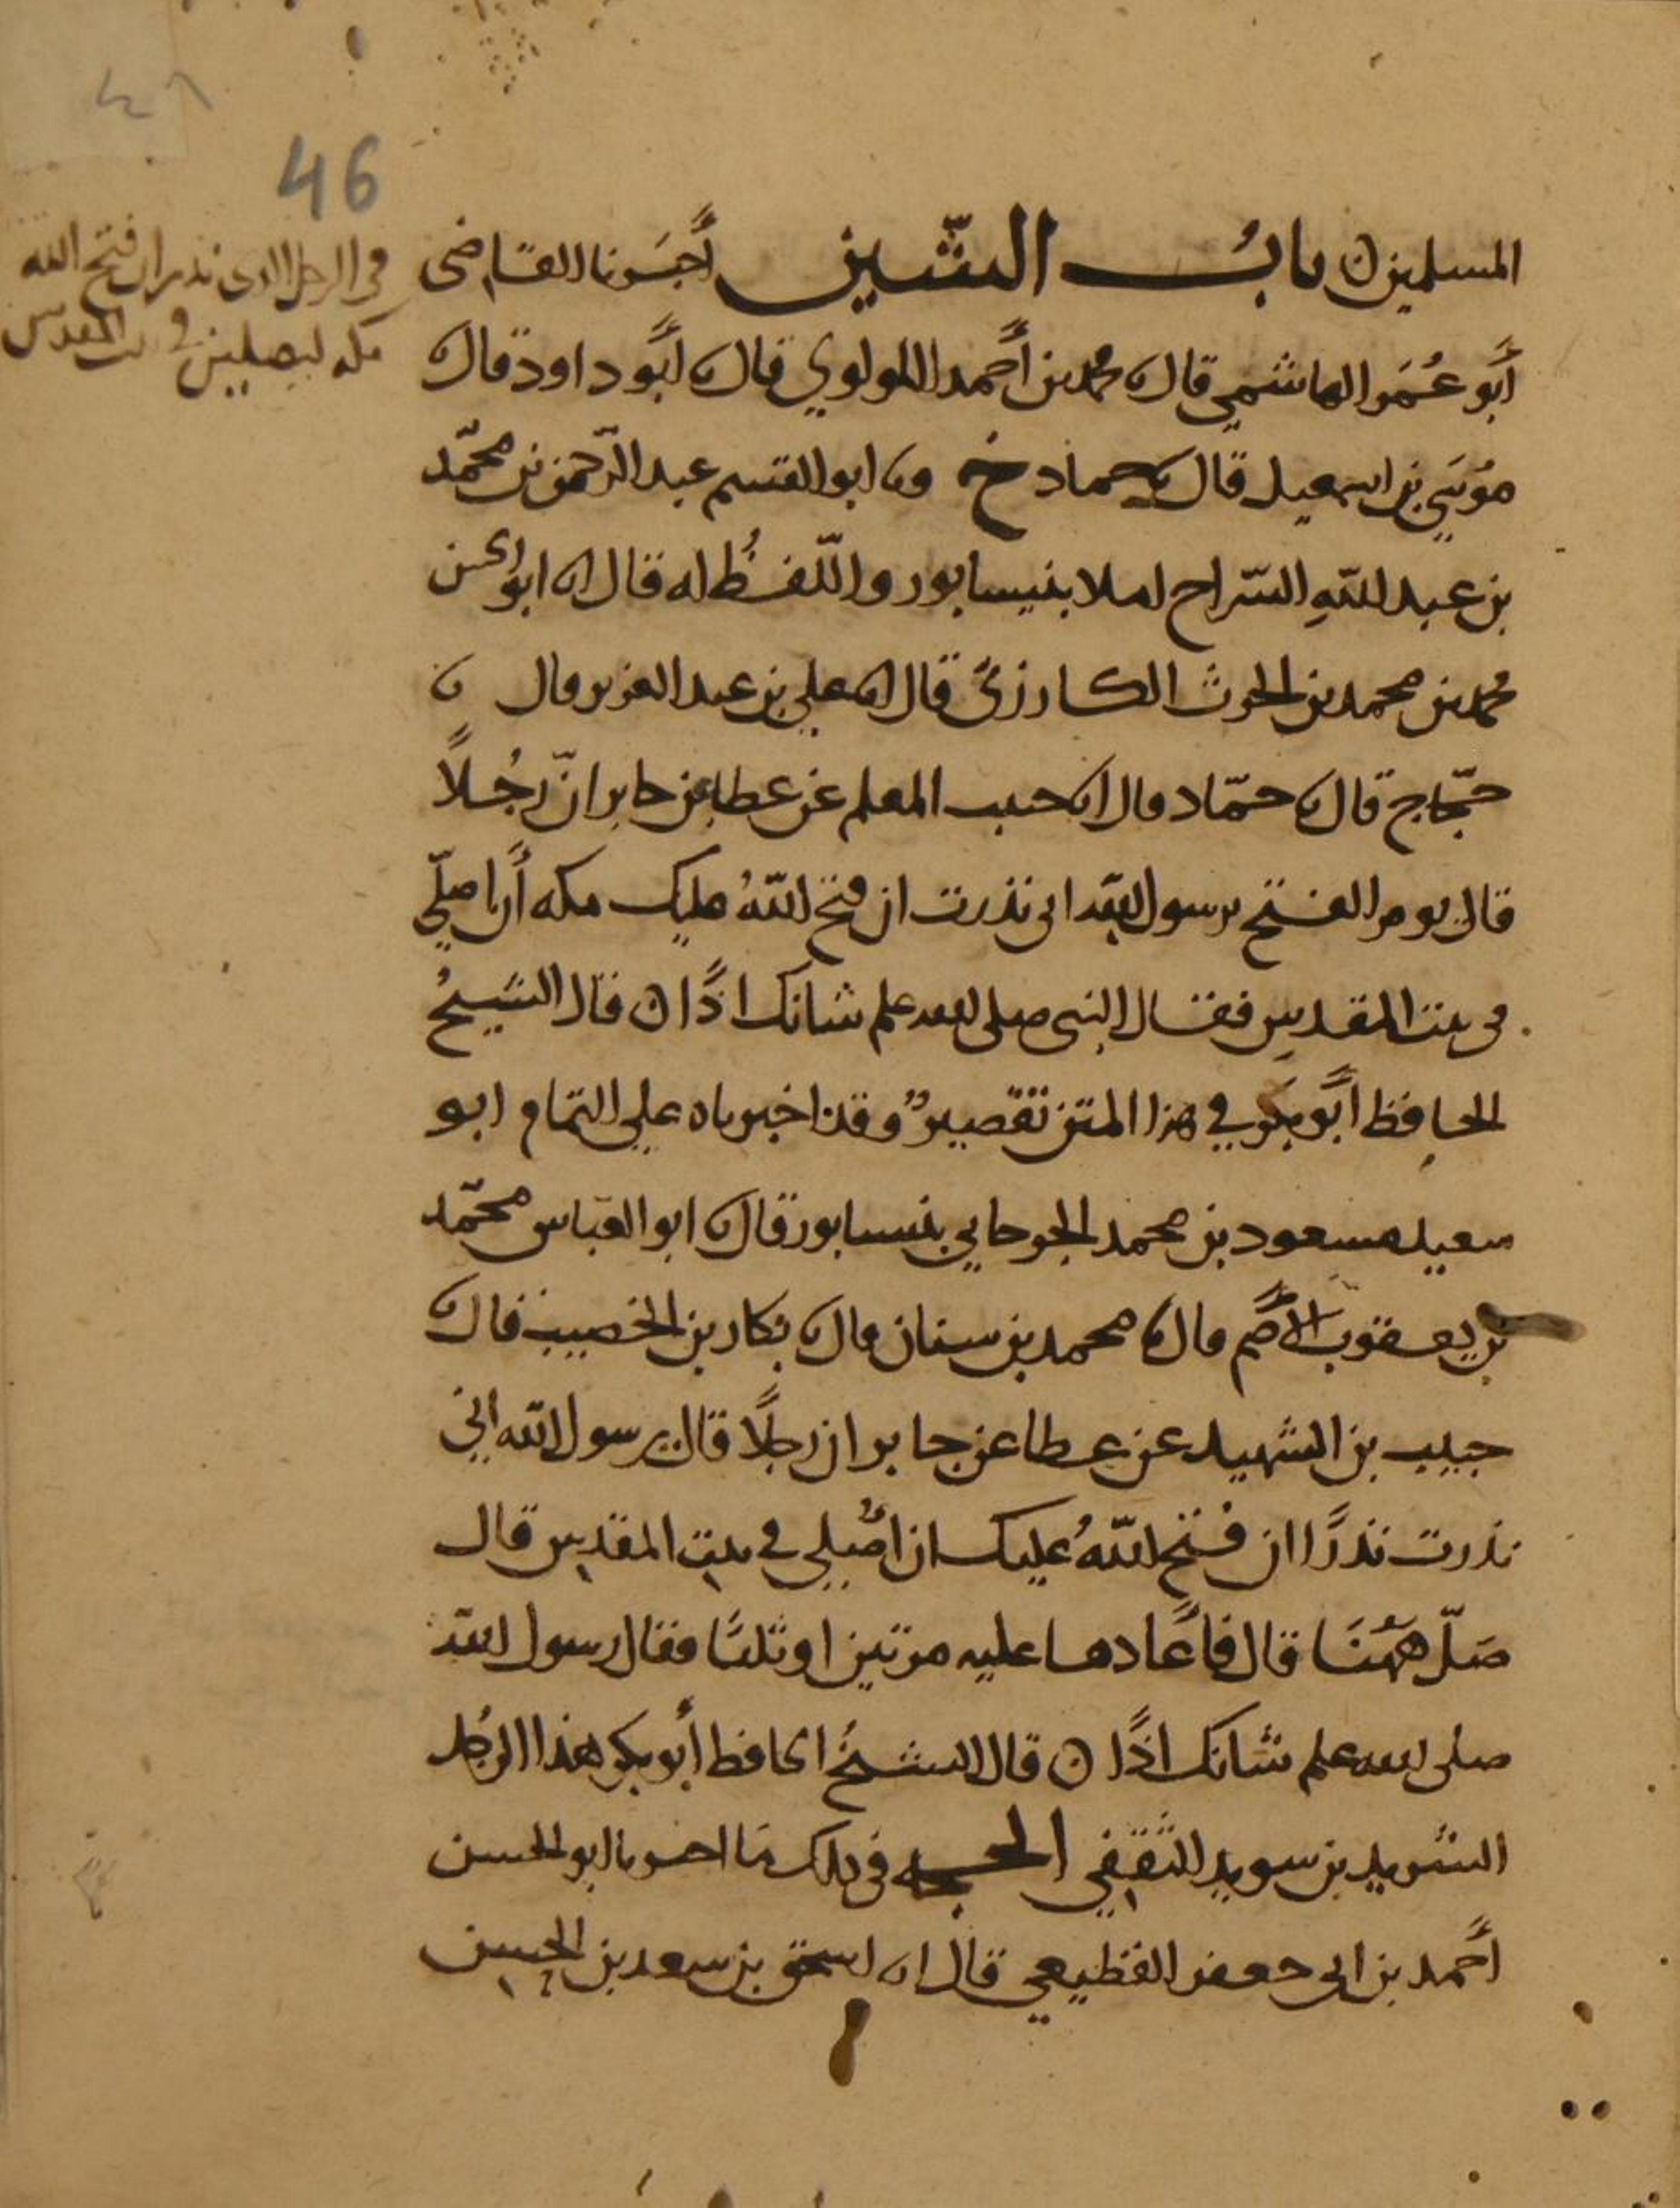 46
المسلمين ن باب الشين أخبرنا القاضى
أبو عمر الهاشمي قال نا محمد بن أحمد اللولوي قال نا أبو داود قال نا
موسى بن اسمعيل قال نا حماد خ ونا ابو القسم عبد الرحمن بن محمد
بن عبد الله السراج املا بنيسابور واللفظ له قال انا ابو الحسن
محمد بن محمد بن الحرث الكارزى قال انا علي بن عبد العزيز قال نا
حجاج قال نا حماد قال انا حبيب المعلم عن عطا عن جابر ان رجلا
قال يوم الفتح يرسول الله انى نذرت ان فتح الله عليك مكه أن اصلي
فى بيت المقدس فقال النبى صلى الله علم شانك اذا ن قال الشيخ
الحافظ أبو بكر في هذا المتن تقصير وقد اخبرناه على التمام ابو
سعيد مسعود بن محمد الجرجاني بنيسابور قال نا ابو العباس محمد
بن يعقوب الأصم قال نا محمد بن سنان قال نا بكار بن الخصيب قال نا
حبيب بن الشهيد عن عطا عن جابر ان رجلا قال يرسول الله اني
نذرت نذرا ان فتح الله عليك ان أصلي في بيت المقدس قال
صل ههنا قال فأعادها عليه مرتين او ثلثا فقال رسول الله
صلى الله علم شانك اذا ن قال الشيخ الحافظ أبو بكر هذا الرجل
الشريد بن سويد الثقفي الحجه في ذلك ما اخبرنا ابو الحسن
أحمد بن ابى جعفر القطيعي قال انا اسحق بن سعد بن الحسن
فى الرجل الذى نذر ان فتح الله
مكه ليصلين فى بيت المقدس